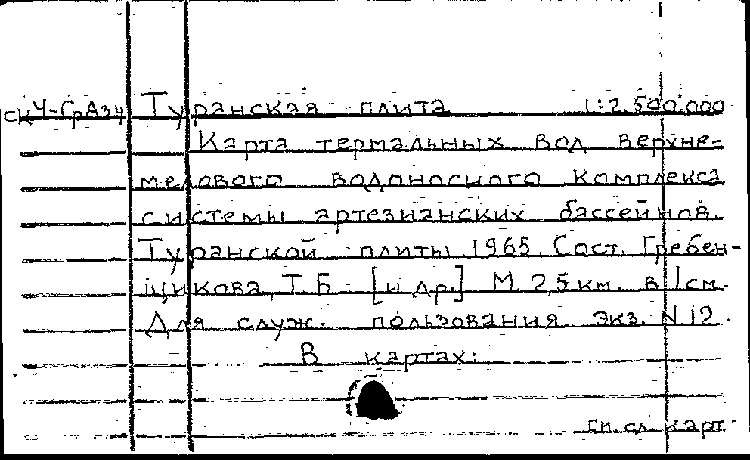 скЧ-ГрАзч Туранская плита 1:2.500.000
Карта термальных вод верхне-
мелового водоносного комплекса
системы артезианских бассейнов
Туранской плиты 1965. Сост. Гребен-
щикова, Т.Б. [и др.] М 25 км. в 1 см.
Для служ. пользования. экз. N 12.
В картах:
см. сл. карт.